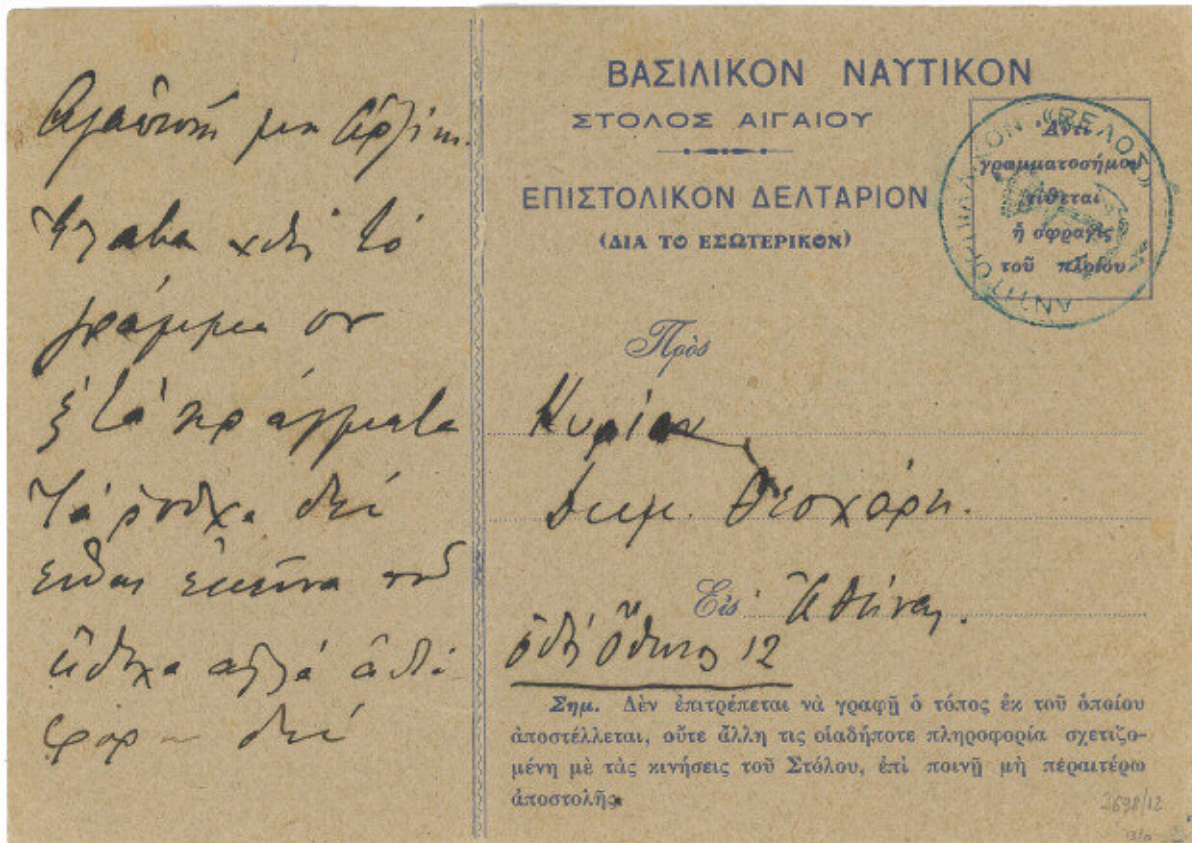 Ἔλαβα χθὲς τὸ
γράμμα σου
τὰ πράγματα
Τὰ ροῦχα δὲν
ἐκεῖνα ποῦ
ἤθελα ἀλλὰ ἀδιά
φορο δὲν
ΒΑΣΙΛΙΚΟΝ ΝΑΥΤΙΚΟΝ
ΣΤΟΛΟΣ ΑΙΓΑΙΟΥ
ΕΠΙΣΤΟΛΙΚΟΝ ΔΕΛΤΑΡΙΟΝ
(ΔΙΑ ΤΟ ΕΣΩΤΕΡΙΚΟΝ)
Ἀντὶ
γραμματοσήμου
τίθεται
ἡ σφραγὶς
τοῦ πλοίου
ΑΝΤΙΤΟΡΠΙΛΛΙΚΟΝ "ΒΕΛΟΣ"
Πρὸς
Κυρίαν
Δημ. Θεοχάρη.
Εἰς Ἀθήνας.
ὁδὸς Ὄθωνος 12
Σημ. Δὲν ἐπιτρέπεται νὰ γραφῇ ὁ τόπος ἐκ τοῦ ὁποίου
ἀποστέλλεται, οὔτε ἄλλη τις οἱαδήποτε πληροφορία σχετιζο-
μένη μὲ τὰς κινήσεις τοῦ Στόλου, ἐπὶ ποινῇ μὴ πέραιτέρω
ἀποστολῆς.
2698/12